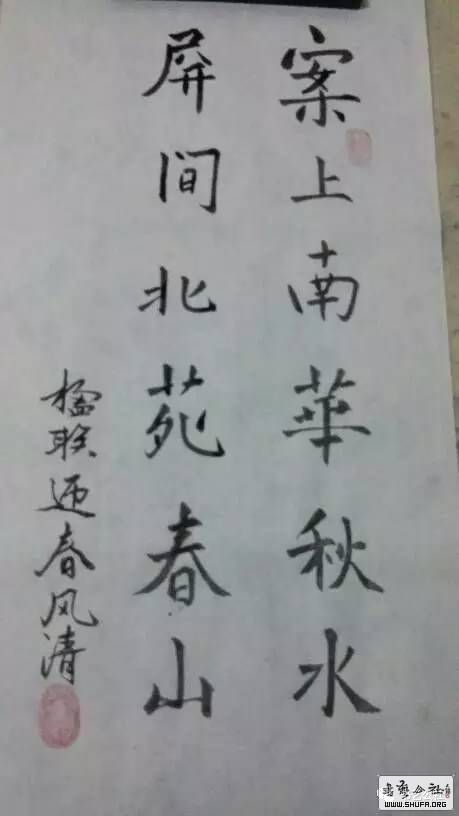 案上南華秋水
屏间北苑春山
楹联迎春风清
书艺公社
WWW.SHUFA.ORG